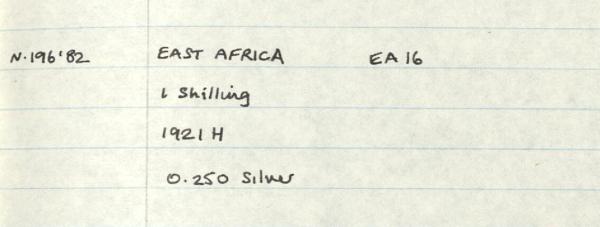 N.196'82 EAST AFRICA EA 16
1 Shilling
1921 H
0.250 Silver